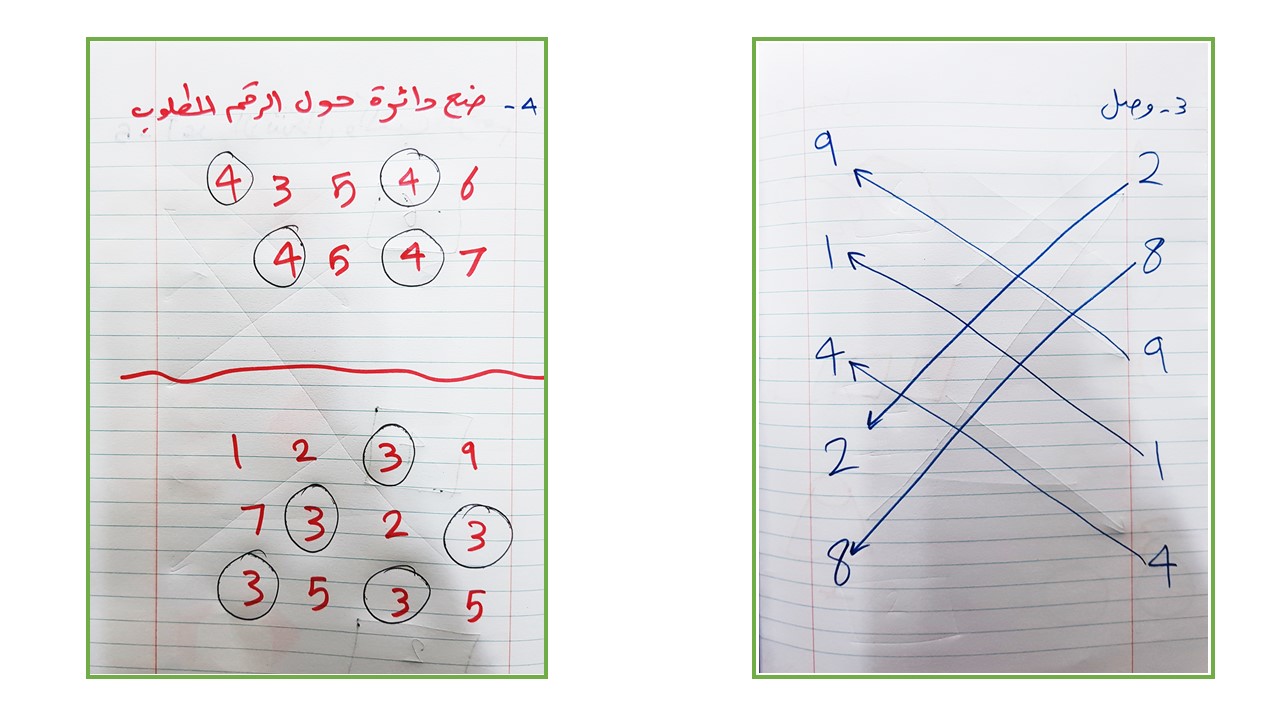 3- وصل
9 2
1 8
4 9
2 1
8 4
4- ضع دائرة حول الرقم المطلوب
4 3 5 4 6
4 5 4 7
1 2 3 9
7 3 2 3
3 5 3 5